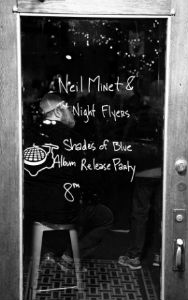 Neil Minet &
Night Flyers
Shades of Blue
Album Release Party
8pm